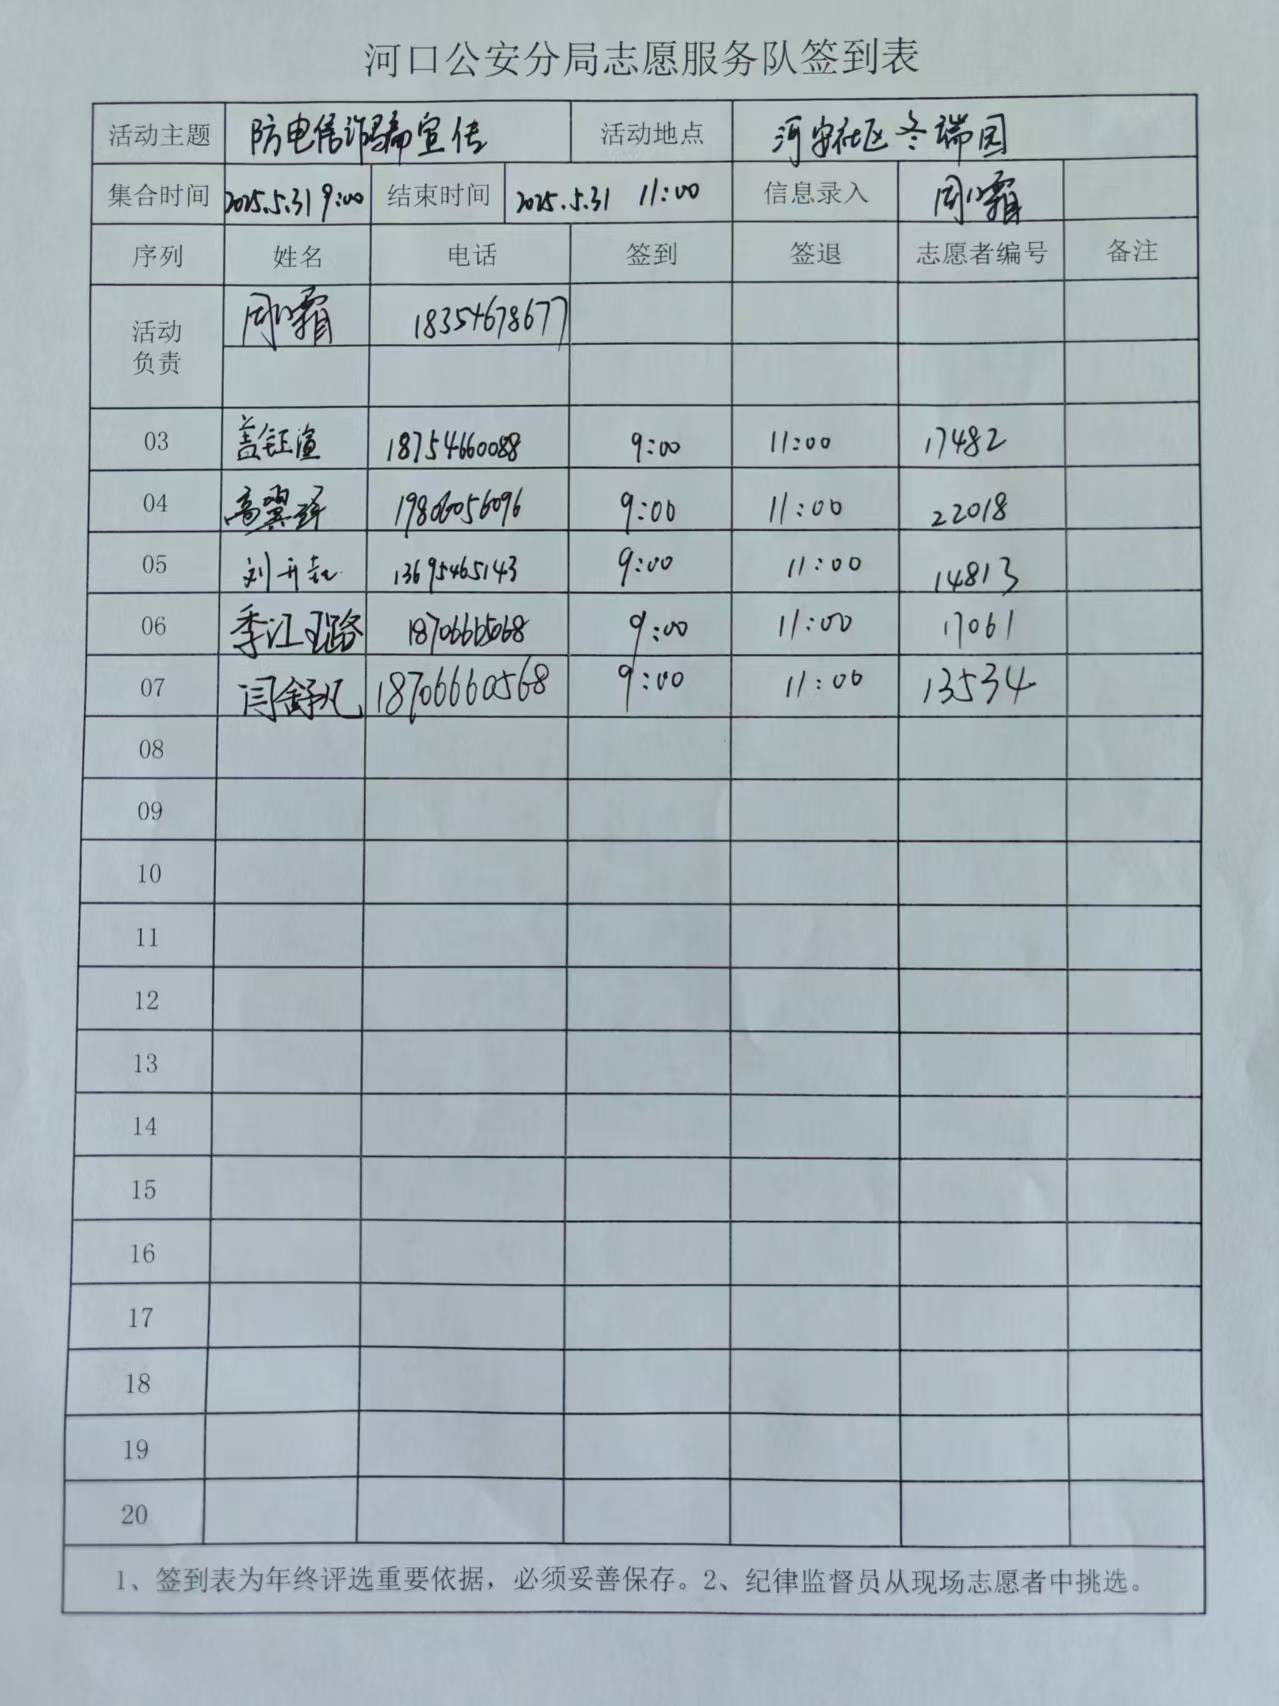 河口公安分局志愿服务队签到表
活动主题 防电信诈骗宣传 活动地点 河安社区冬瑞园
集合时间 2025.5.31 9:00 结束时间 2025.5.31 11:00 信息录入 周小霜
序列 姓名 电话 签到 签退 志愿者编号 备注
活动负责 周小霜 18354678677
03 盖钰渲 18754660088 9:00 11:00 17482
04 高翼 19806056096 9:00 11:00 22018
05 刘升 13695465143 9:00 11:00 14813
06 季江璐 9:00 11:00 17061
07 闫舒凡 18706660568 9:00 11:00 13534
08
09
10
11
12
13
14
15
16
17
18
19
20
1、签到表为年终评选重要依据，必须妥善保存。2、纪律监督员从现场志愿者中挑选。